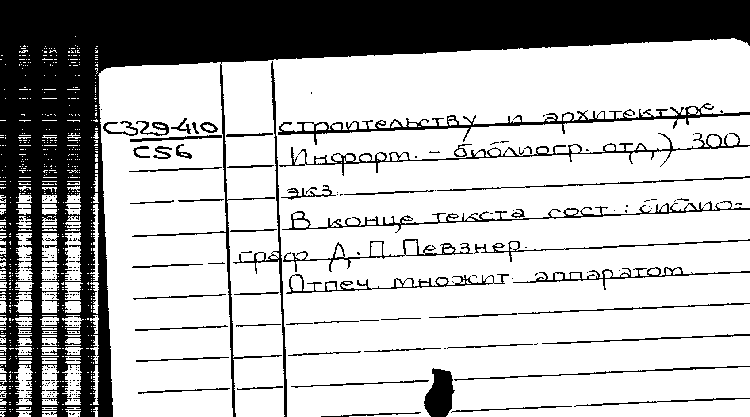 С329-410 строительству и архитектуре.
С56 Информ. - библиогр. отд.) 300
экз.
В конце текста сост.: библио-
граф Д. П. Певзнер.
Отпеч. множит. аппаратом